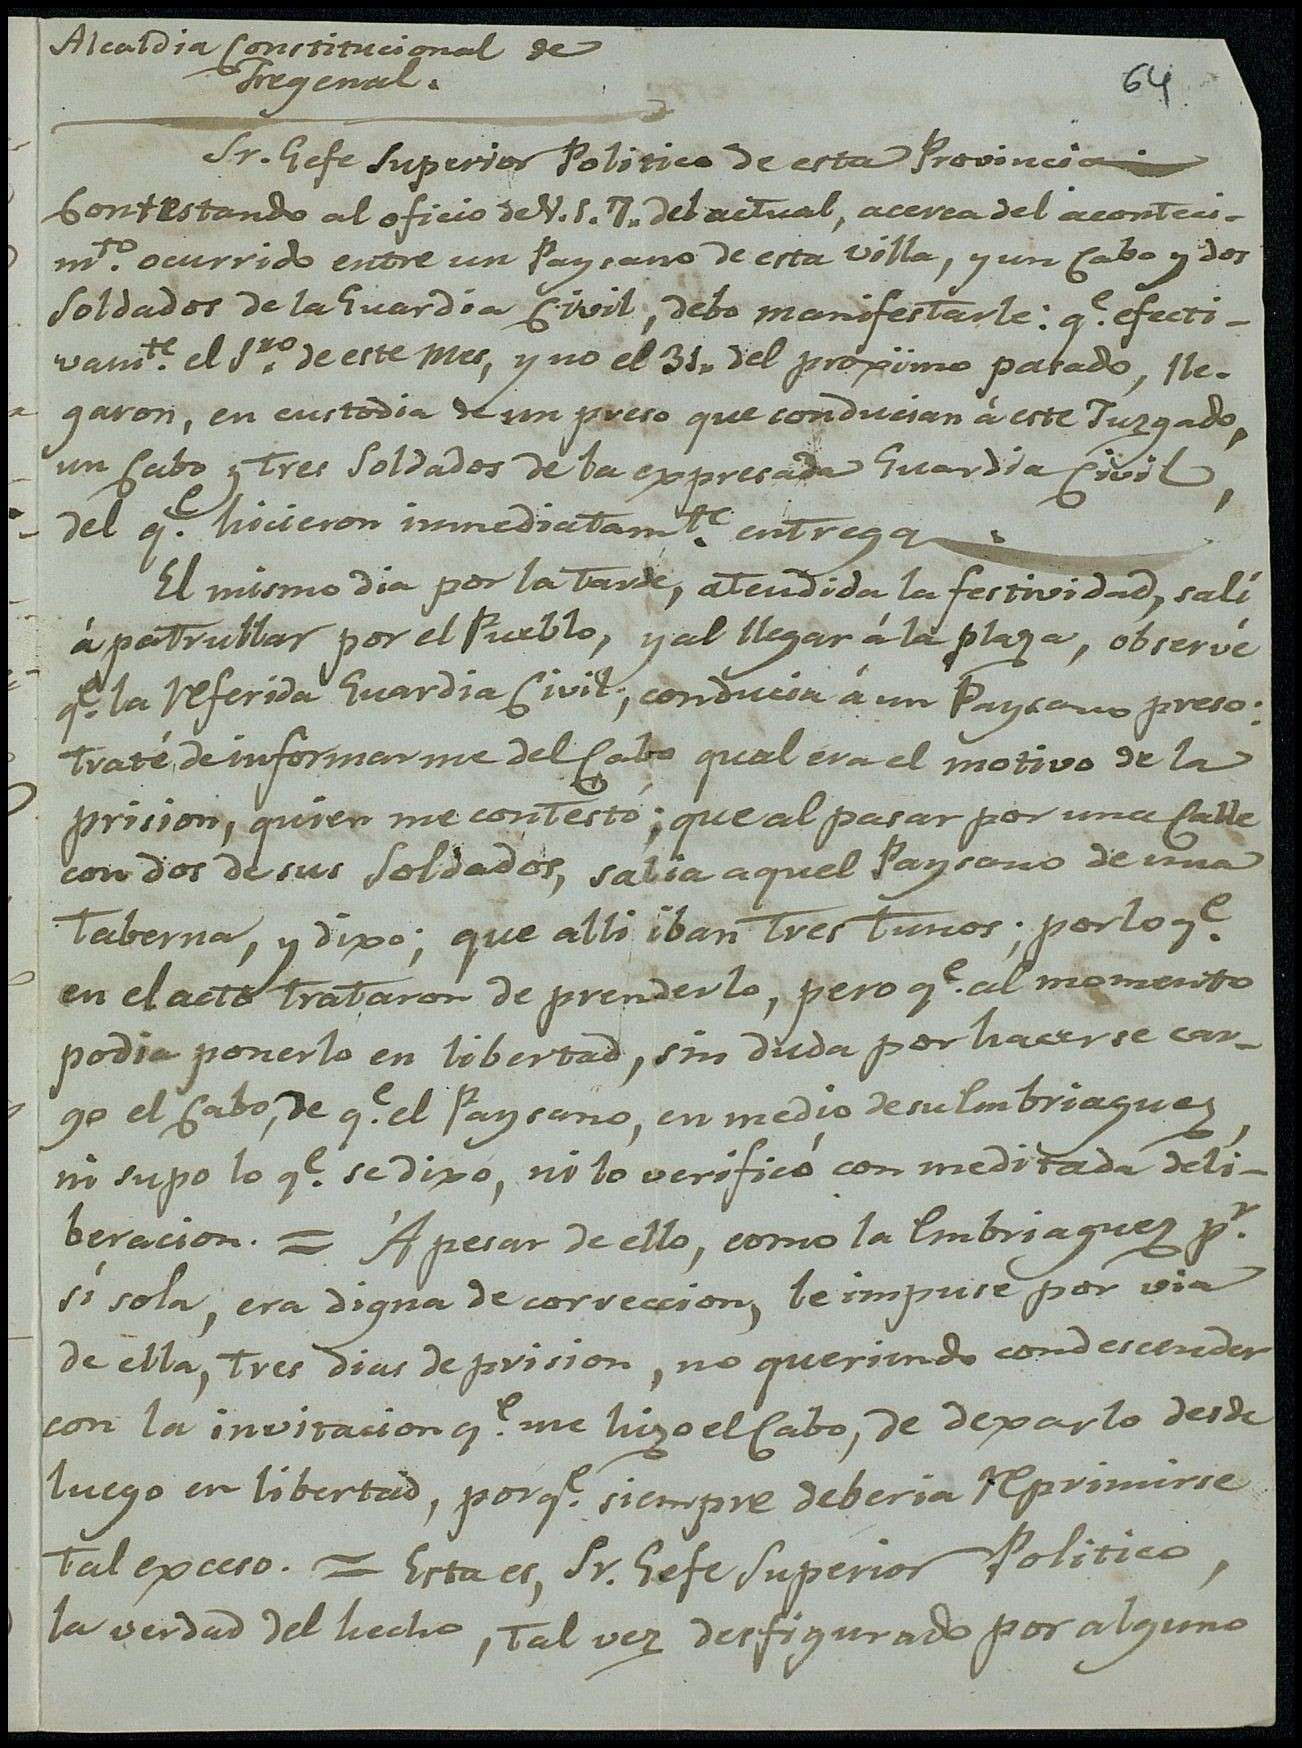 Alcaldia Constitucional de
Fregenal.
64
Sr. Gefe Superior Politico de esta Provincia.
Contestando al oficio de V.S. 7,, del actual, acerca del aconteci-
mto. ocurrido entre un Paysano de esta villa, y un Cabo y dos
Soldados de la Guardia Civil, debo manifestarle: qe. efecti-
vamte. el 1ro. de este Mes, y no el 31,, del proximo pasado, lle-
garon, en custodia de un preso que conducian á este Juzgado,
un Cabo y tres Soldados de la expresada Guardia Civil,
del qe. hicieron inmediatamte. entrega.
El mismo dia por la tarde, atendida la festividad, salí
á patrullar por el Pueblo, y al llegar á la plaza, observé
qe. la referida Guardia Civil; conducia á un Paysano preso:
traté de informarme del Cabo qual era el motivo de la
prision, quien me contestó; que al pasar por una Calle
con dos de sus Soldados, salia aquel Paysano de una
taberna, y dixo; que alli iban tres tunos; por lo qe.
en el acto trataron de prenderlo, pero qe. al momento
podia ponerlo en libertad, sin duda por hacerse car-
go el Cabo, de qe. el Paysano, en medio de su Embriaguez,
ni supo lo qe. se dixo, ni lo verificó con meditada deli-
beracion. = Á pesar de ello, como la Embriaguez pr.
sí sola, era digna de correccion, le impuse por via
de ella, tres dias de prision, no queriendo condescender
con la invitacion qe. me hizo el Cabo, de dexarlo desde
luego en libertad, porqe. siempre deberia reprimirse
tal exceso. = Esta es, Sr. Gefe Superior Politico,
la verdad del hecho, tal vez desfigurado por alguno